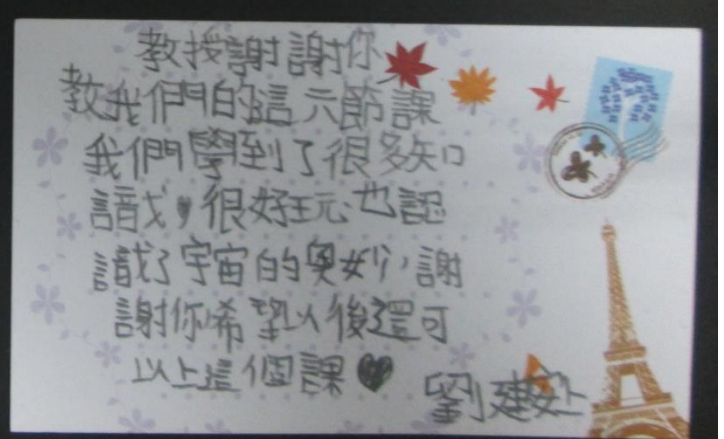 教授謝謝你
教我們的這六節課
我們學到了很多知
識，很好玩也認
識了宇宙的奧妙，謝
謝你希望以後還可
以上這個課
劉建